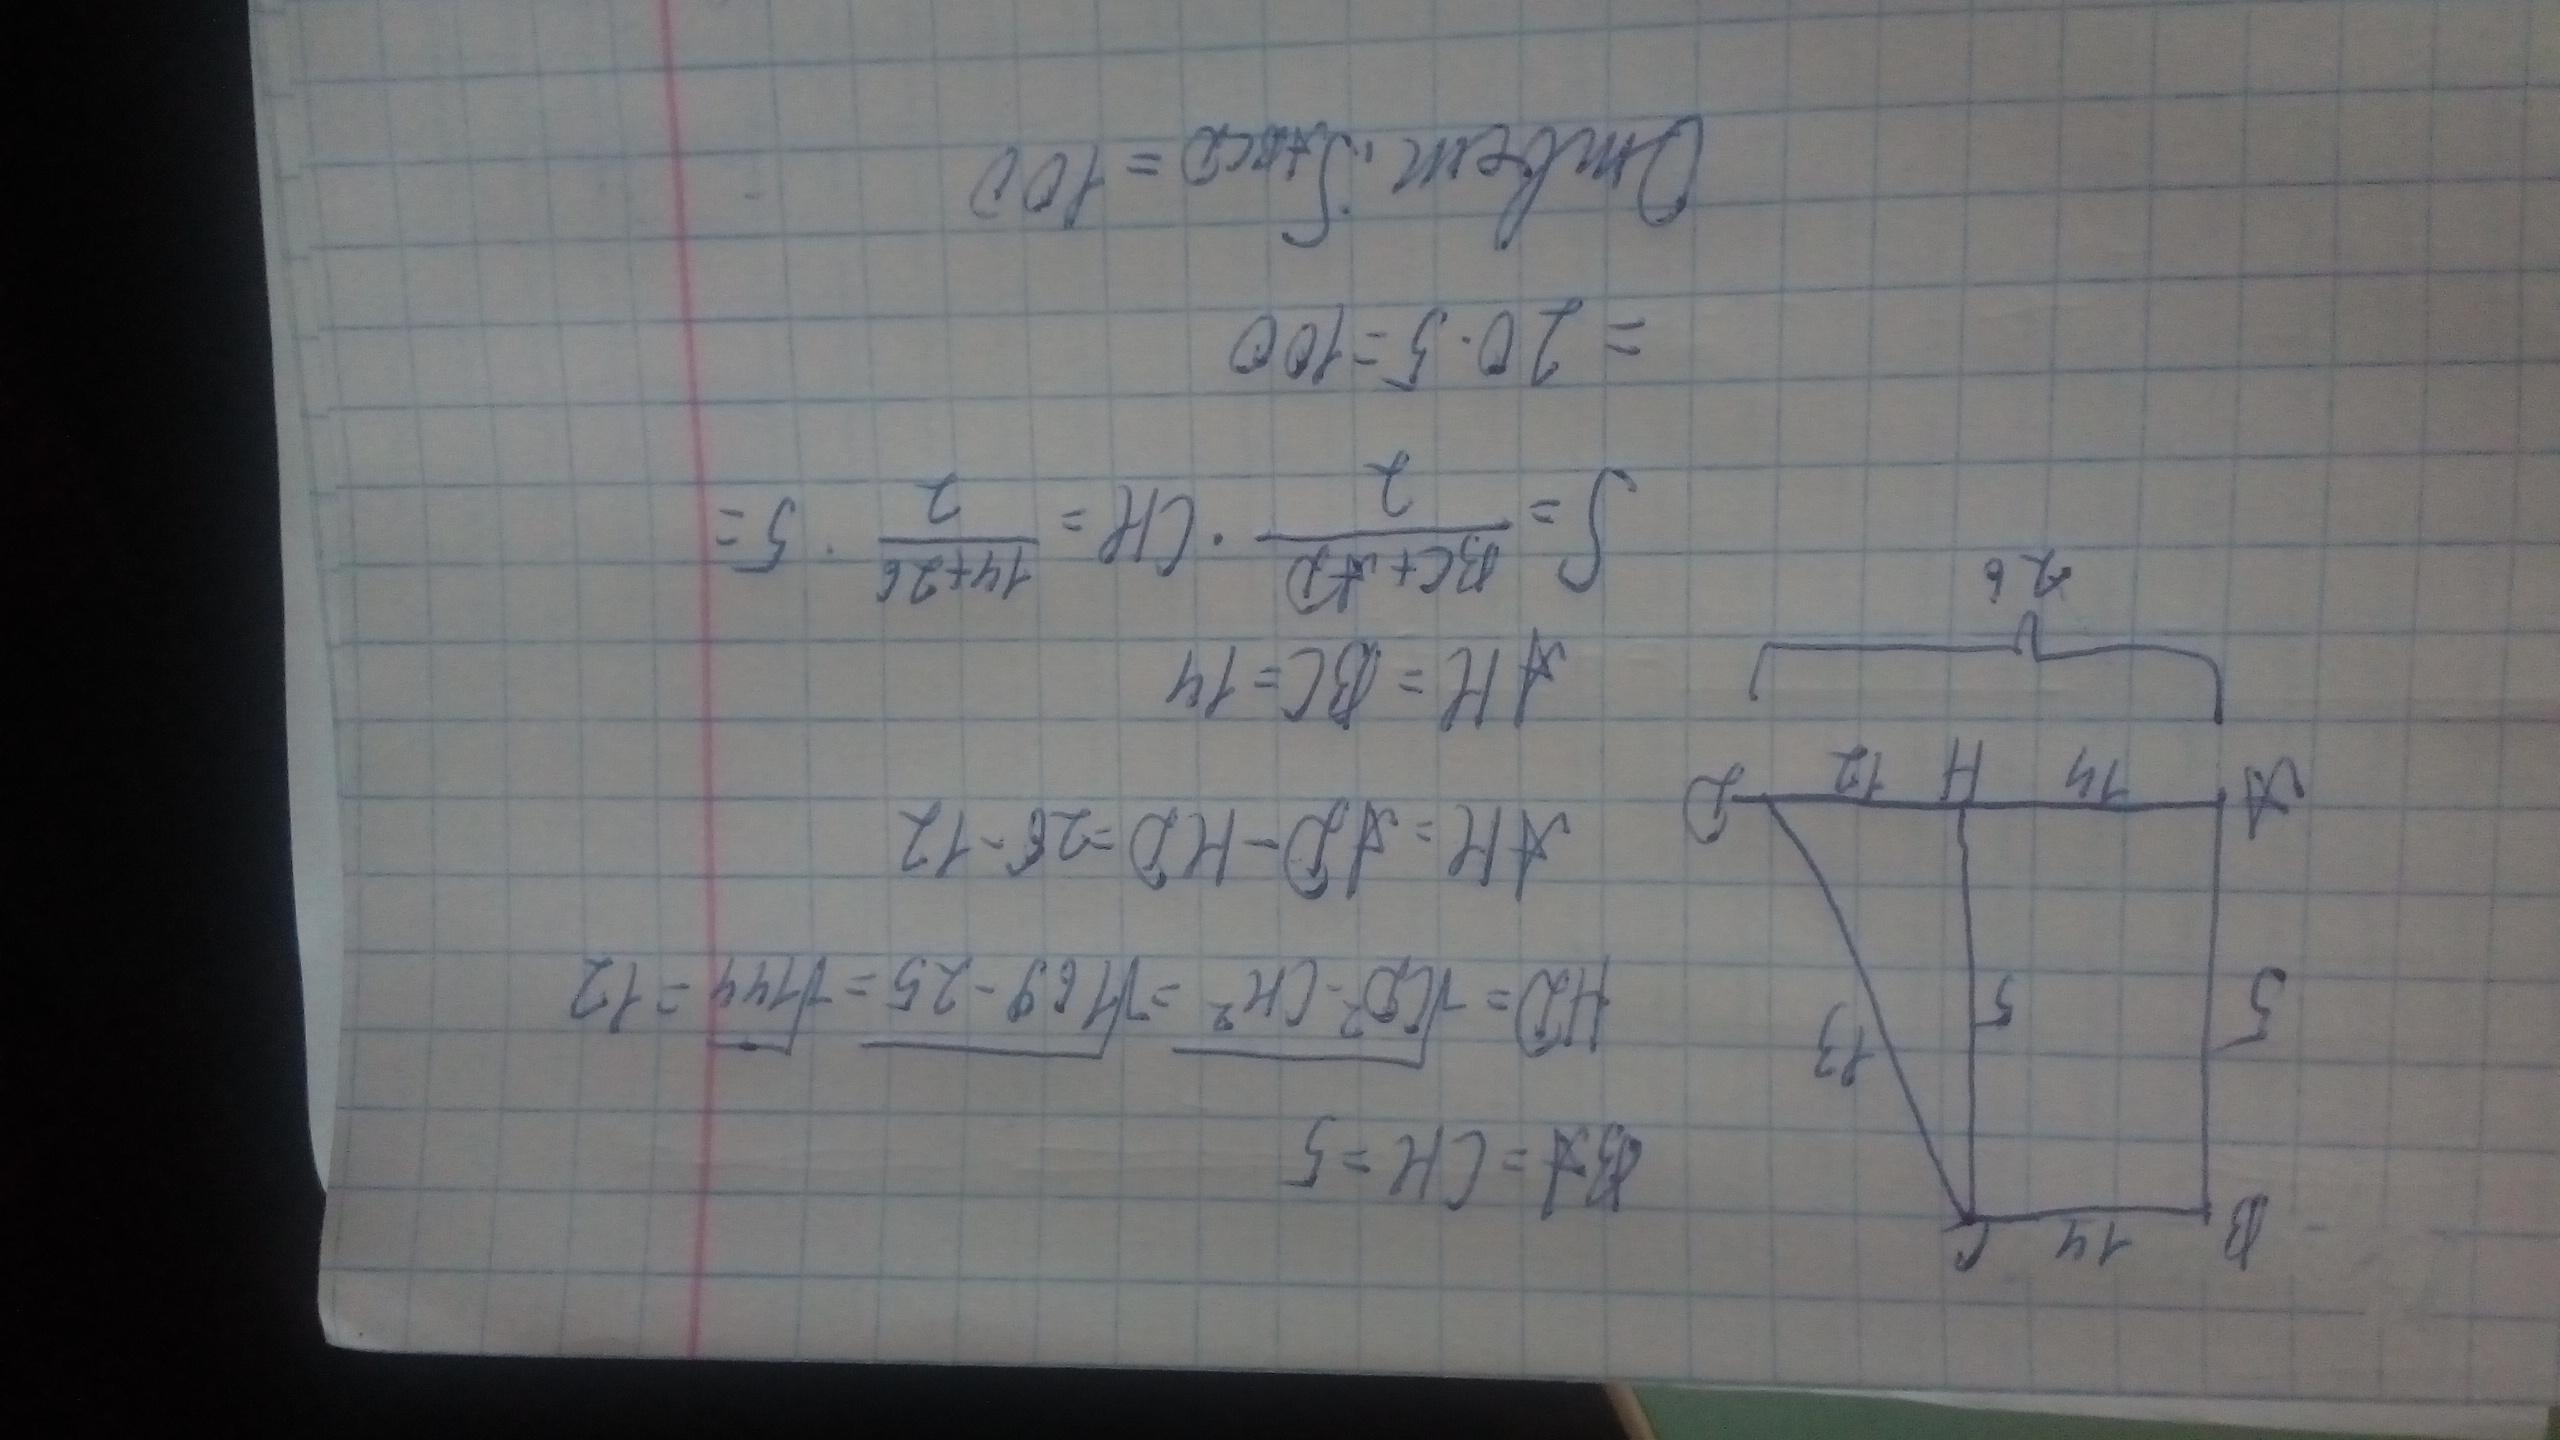 B 14 C
5 5 13
A 14 H 12 D
26
BA = CH = 5
HD = √CD² - CH² = √169 - 25 = √144 = 12
AH = AD - HD = 26 - 12
AH = BC = 14
S = BC + AD / 2 · CH = 14 + 26 / 2 · 5 =
= 20 · 5 = 100
Ответ: SABCD = 100